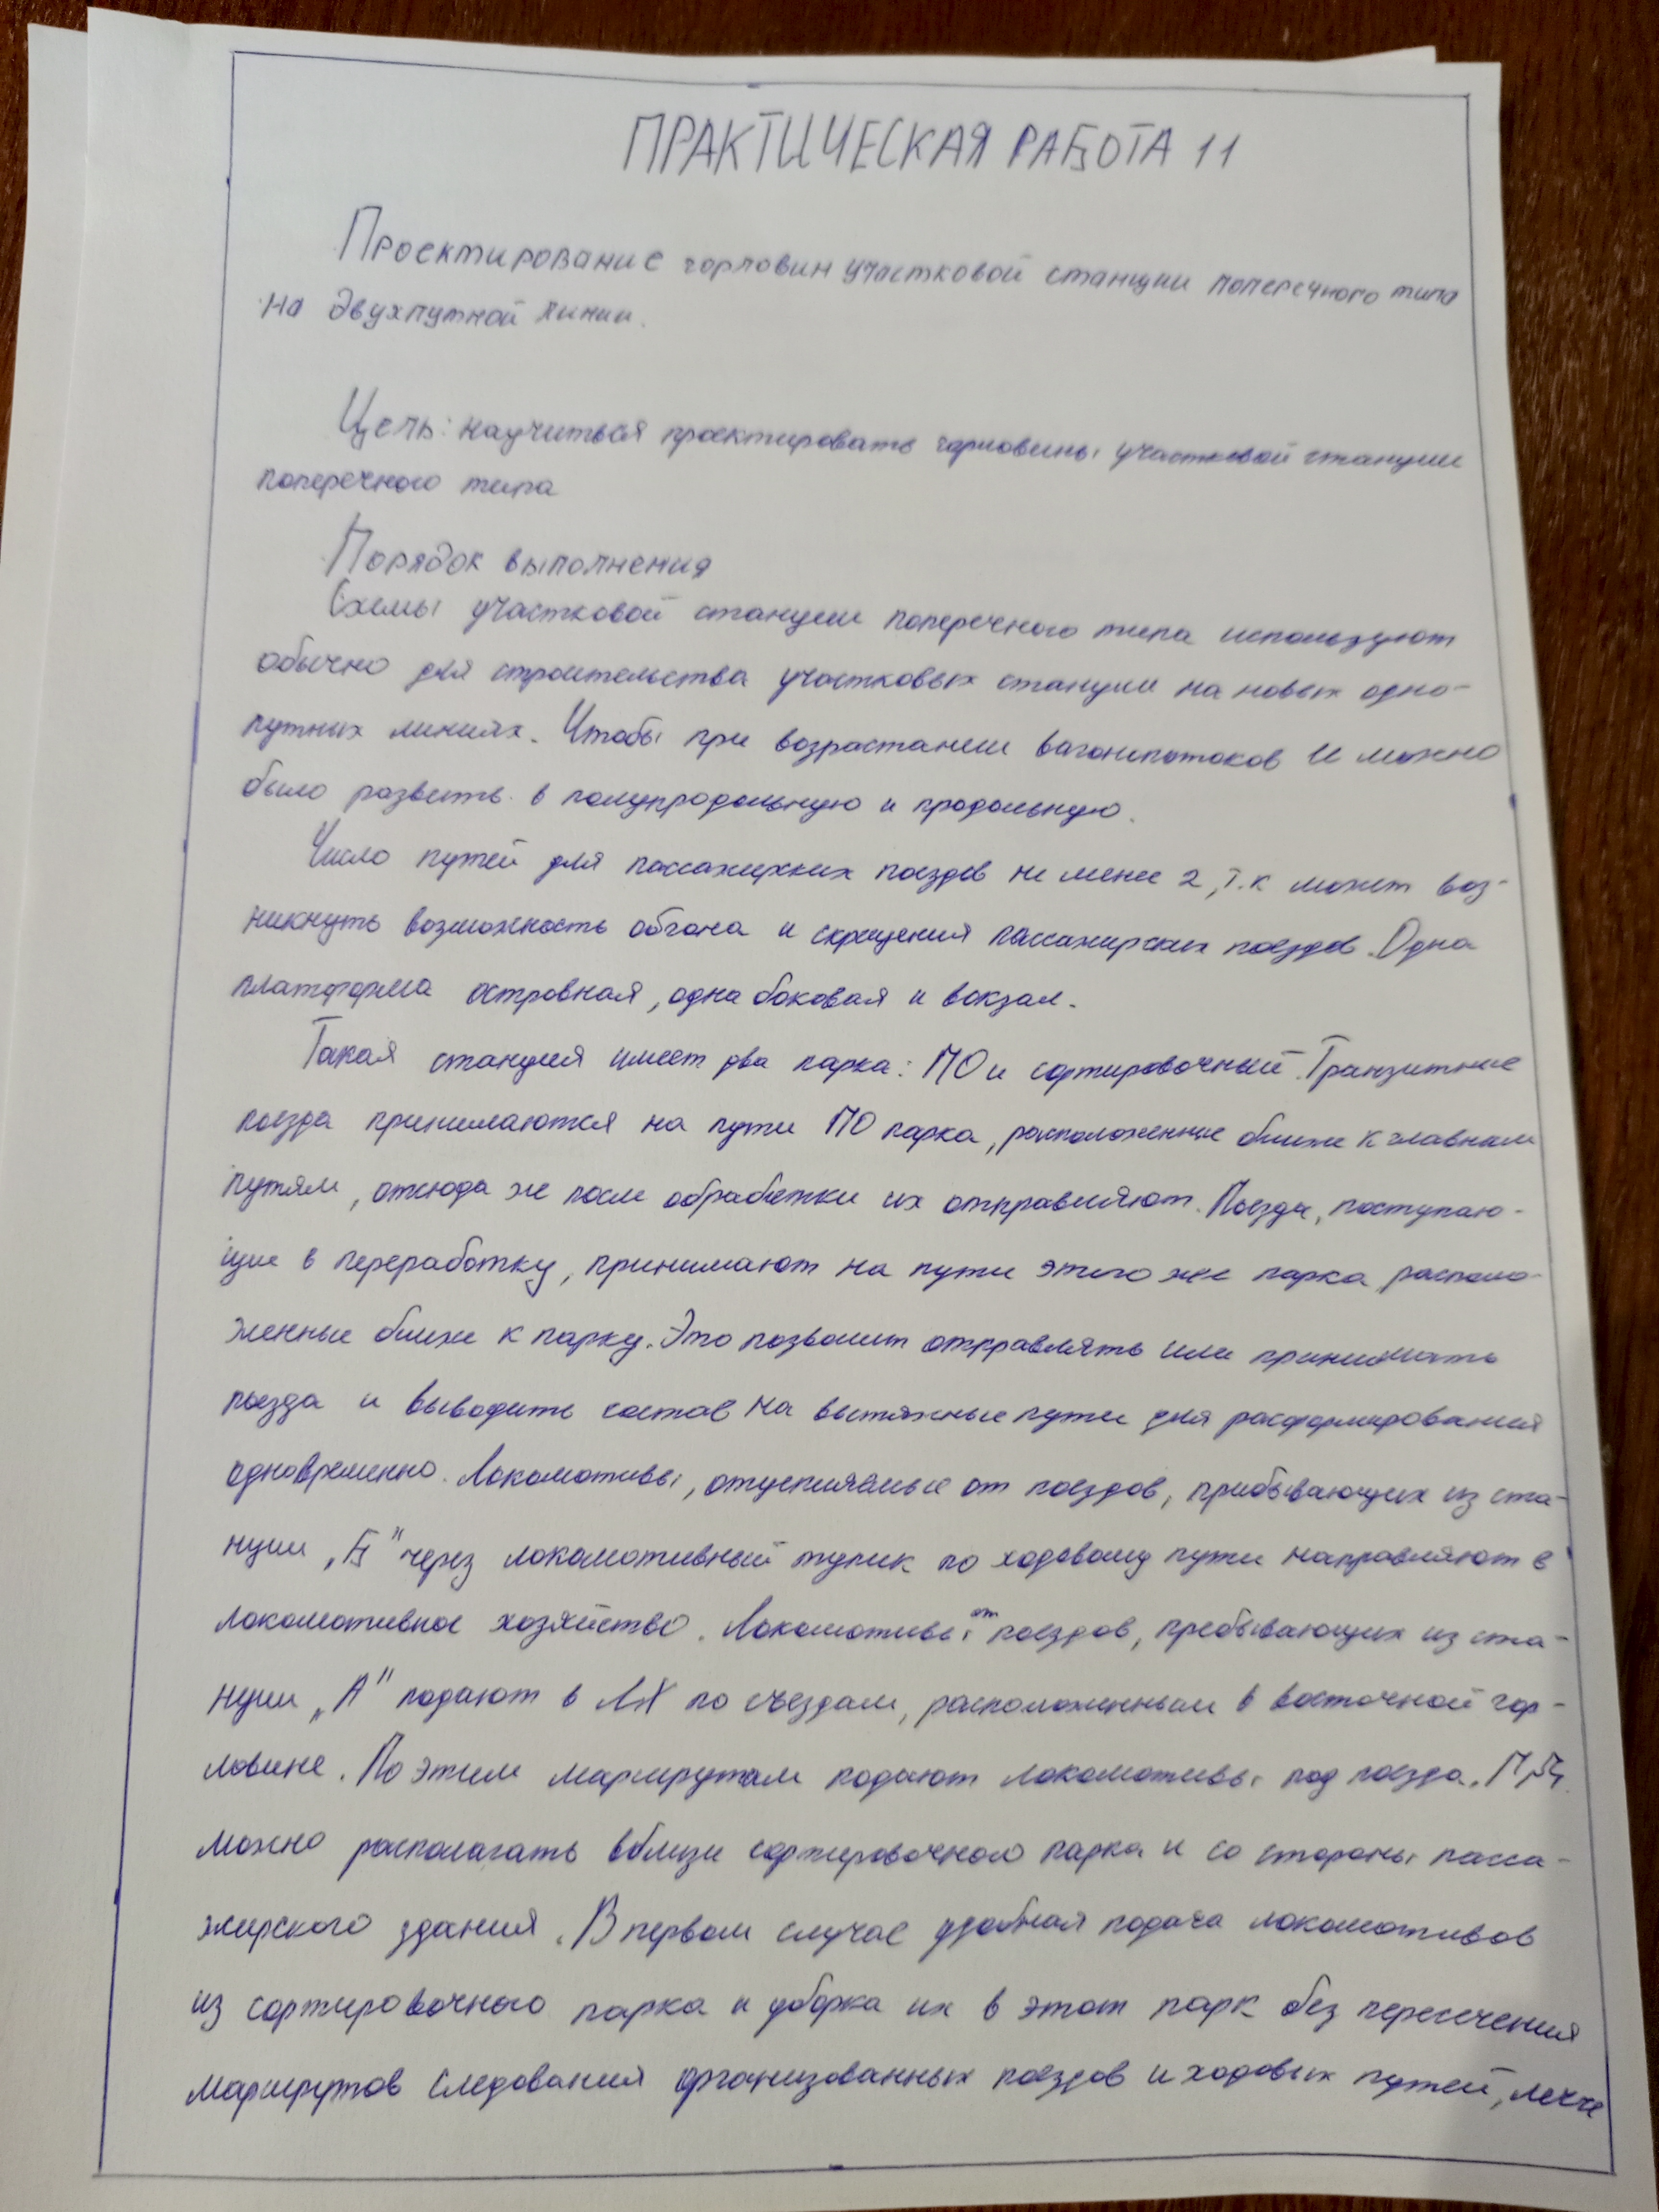 ПРАКТИЧЕСКАЯ РАБОТА 11
Проектирование горловин участковой станции поперечного типа
на двухпутной линии.
Цель: научиться проектировать горловины участковой станции
поперечного типа
Порядок выполнения
Схемы участковой станции поперечного типа используют
обычно для строительства участковых станции на новых одно-
путных линиях. Чтобы при возрастании вагонопотоков и можно
было развить в полупродольную и продольную.
Число путей для пассажирских поездов не менее 2, т.к может воз-
никнуть возможность обгона и скрещения пассажирских поездов. Одна
платформа островная, одна боковая и вокзал.
Такая станция имеет два парка: ПО и сортировочный. Транзитные
поезда принимаются на пути ПО парка, расположенные ближе к главным
путям, отсюда же после обработки их отправляют. Поезда, поступаю-
щие в переработку, принимают на пути этого же парка располо-
женные ближе к парку. Это позволит отправлять или принимать
поезда и выводить состав на вытяжные пути для расформирования
одновременно. Локомотивы, отцепляемые от поездов, прибывающих из ста-
нции „Б" через локомотивный тупик по ходовому пути направляют в
локомотивное хозяйство. Локомотивы от поездов, пребывающих из ста-
нции „А" подают в ЛХ по съездам, расположенным в восточной гор-
ловине. По этим маршрутам подают локомотивы под поезда.
можно располагать вблизи сортировочного парка и со стороны пасса-
жирского здания. В первом случае удобная подача локомотивов
из сортировочного парка и уборка их в этот парк без пересечения
маршрутов следования организованных поездов и ходовых путей, легче